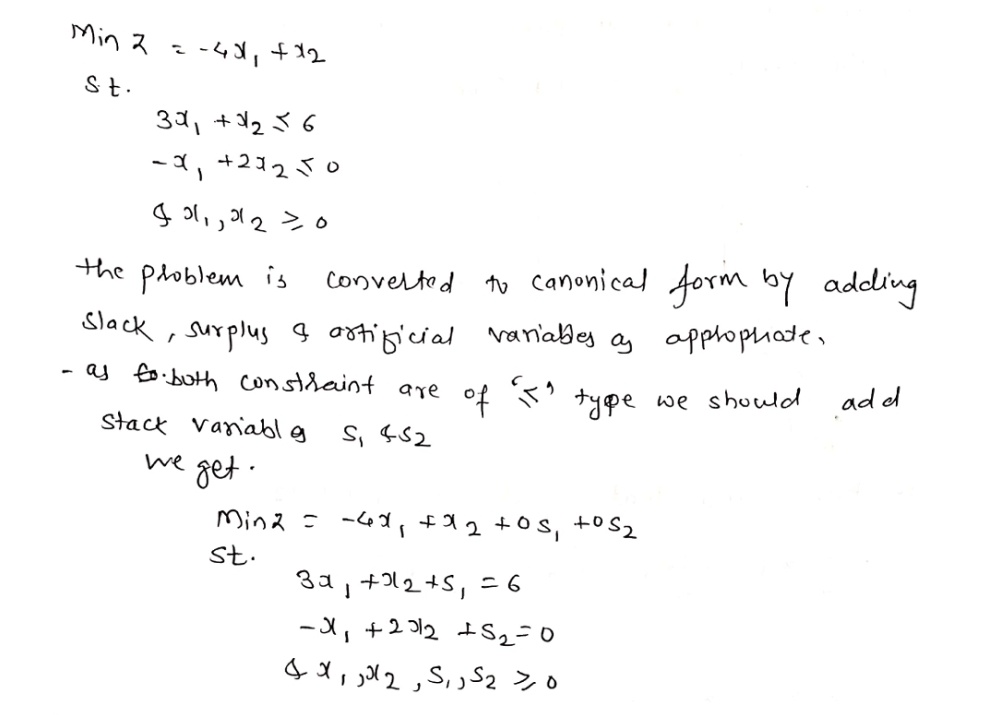 Min Z = -4x₁ + x₂
St.
3x₁ + x₂ ≤ 6
-x₁ + 2x₂ ≤ 0
& x₁, x₂ ≥ 0
the problem is converted to canonical form by adding
slack, surplus & artificial variables as appropriate.
- as both constraint are of '≤' type we should add
stack variables S₁ & S₂
we get.
Min Z = -4x₁ + x₂ + 0S₁ + 0S₂
St.
3x₁ + x₂ + S₁ = 6
-x₁ + 2x₂ + S₂ = 0
& x₁, x₂, S₁, S₂ ≥ 0